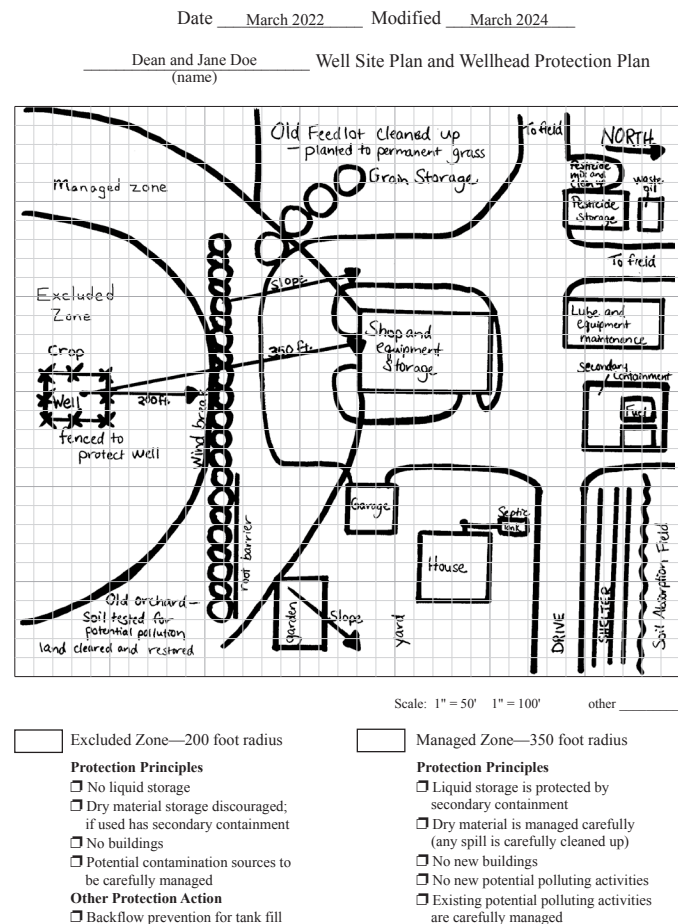 Date March 2022 Modified March 2024
Dean and Jane Doe Well Site Plan and Wellhead Protection Plan
(name)
Old Feedlot cleaned up
— planted to permanent grass
To field
NORTH
Managed zone
Grain Storage
Pesticide
mix and
clean up
Waste
oil
Pesticide
Storage
To field
Slope
Excluded
Zone
Lube and
equipment
maintenance
Shop and
equipment
Storage
350 ft.
Crop
Secondary
Containment
Well
200ft.
Fuel
fenced to
protect well
Wind break
Garage
Septic
tank
House
root barrier
Old orchard —
Soil tested for
potential pollution
land cleared and restored
garden
Slope
yard
DRIVE
SHELTER
Soil Absorption Field
Scale: 1" = 50' 1" = 100' other
Excluded Zone—200 foot radius
Protection Principles
❐ No liquid storage
❐ Dry material storage discouraged;
if used has secondary containment
❐ No buildings
❐ Potential contamination sources to
be carefully managed
Other Protection Action
❐ Backflow prevention for tank fill
Managed Zone—350 foot radius
Protection Principles
❐ Liquid storage is protected by
secondary containment
❐ Dry material is managed carefully
(any spill is carefully cleaned up)
❐ No new buildings
❐ No new potential polluting activities
❐ Existing potential polluting activities
are carefully managed